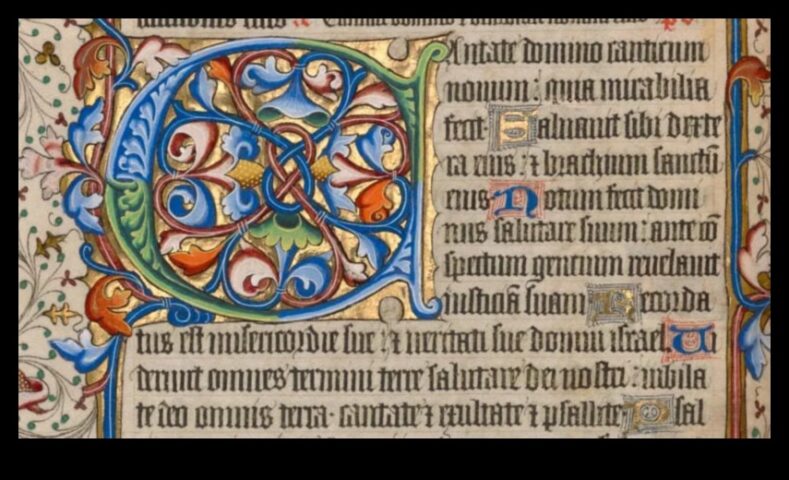 Cantate domino canticum
nouum : quia mirabilia
fecit. Saluauit sibi dexte
ra eius : ⁊ brachium sanctū
eius Notum fecit domi
nus salutare suum : ante cō
spectum gentium reuelauit
iusticiā suam Recorda
tus est misericordie sue : ⁊ ueritati sue domui israel. Ui
derunt omnes termini terre salutare dei nostri : iubila
te deo omnis terra · cantate ⁊ exultate ⁊ psallite Psal